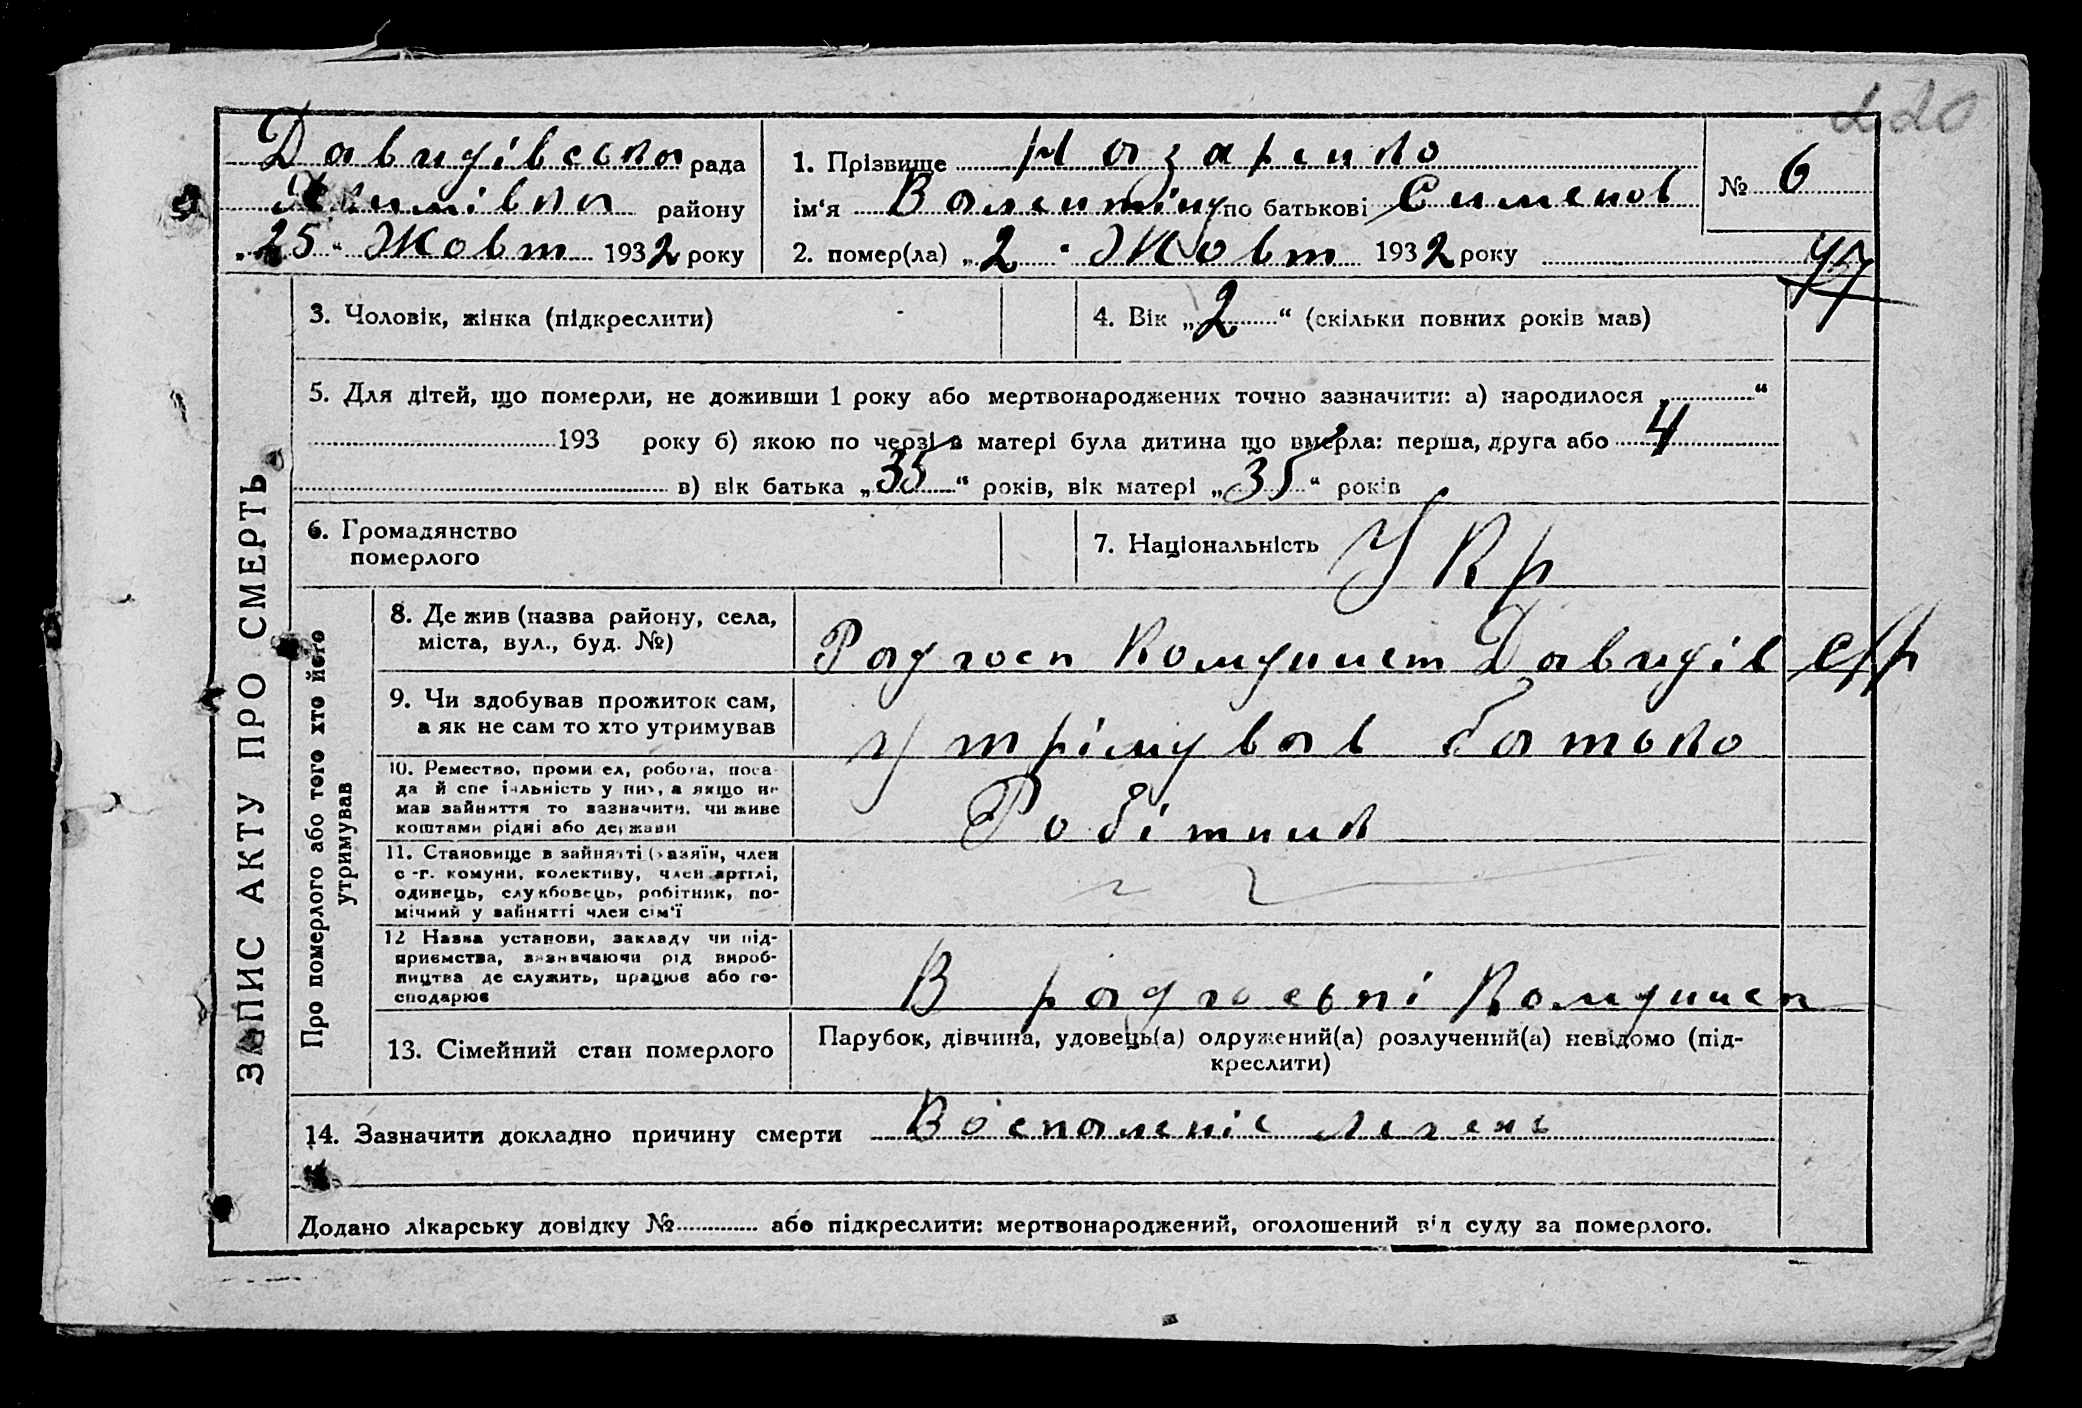 220
Давидівська рада
району
„25“ Жовт 1932 року
1. Прізвище Назаренко
ім‘я Валентін по батькові Сименов
2. помер(ла) „2“ Жовт 1932 року
№ 6
ЗАПИС АКТУ ПРО СМЕРТЬ
3. Чоловік, жінка (підкреслити)
4. Вік „2“ (скільки повних років мав)
5. Для дітей, що померли, не доживши 1 року або мертвонароджених точно зазначити: а) народилося „ “
193 року б) якою по черзі в матері була дитина що вмерла: перша, друга або 4
в) вік батька „35“ років, вік матері „35“ років
6. Громадянство
померлого
7. Національність Укр
Про померлого або того хто його
утримував
8. Де жив (назва району, села,
міста, вул., буд. №)
Радгосп Комуніст Давидів с/р
9. Чи здобував прожиток сам,
а як не сам то хто утримував
утрімував батько
10. Ремество, промисел, робота, поса-
да й спеціальність у них, а якщо не
мав зайняття то зазначити, чи живе
коштами рідні або держави
Робітник
11. Становище в зайнятті (хазяїн, член
с.-г. комуни, колективу, член артілі,
одинець, службовець, робітник, по-
мічний у зайнятті член сім‘ї
12 Назва установи, закладу чи під-
приємства, визначаючи рід вироб-
ництва де служить, працює або го-
сподарює
В радгоспі Комуніст
13. Сімейний стан померлого
Парубок, дівчина, удовець(а) одружений(а) розлучений(а) невідомо (під-
креслити)
14. Зазначити докладно причину смерти Воспаленіе легехь
Додано лікарську довідку № або підкреслити: мертвонароджений, оголошений від суду за померлого.